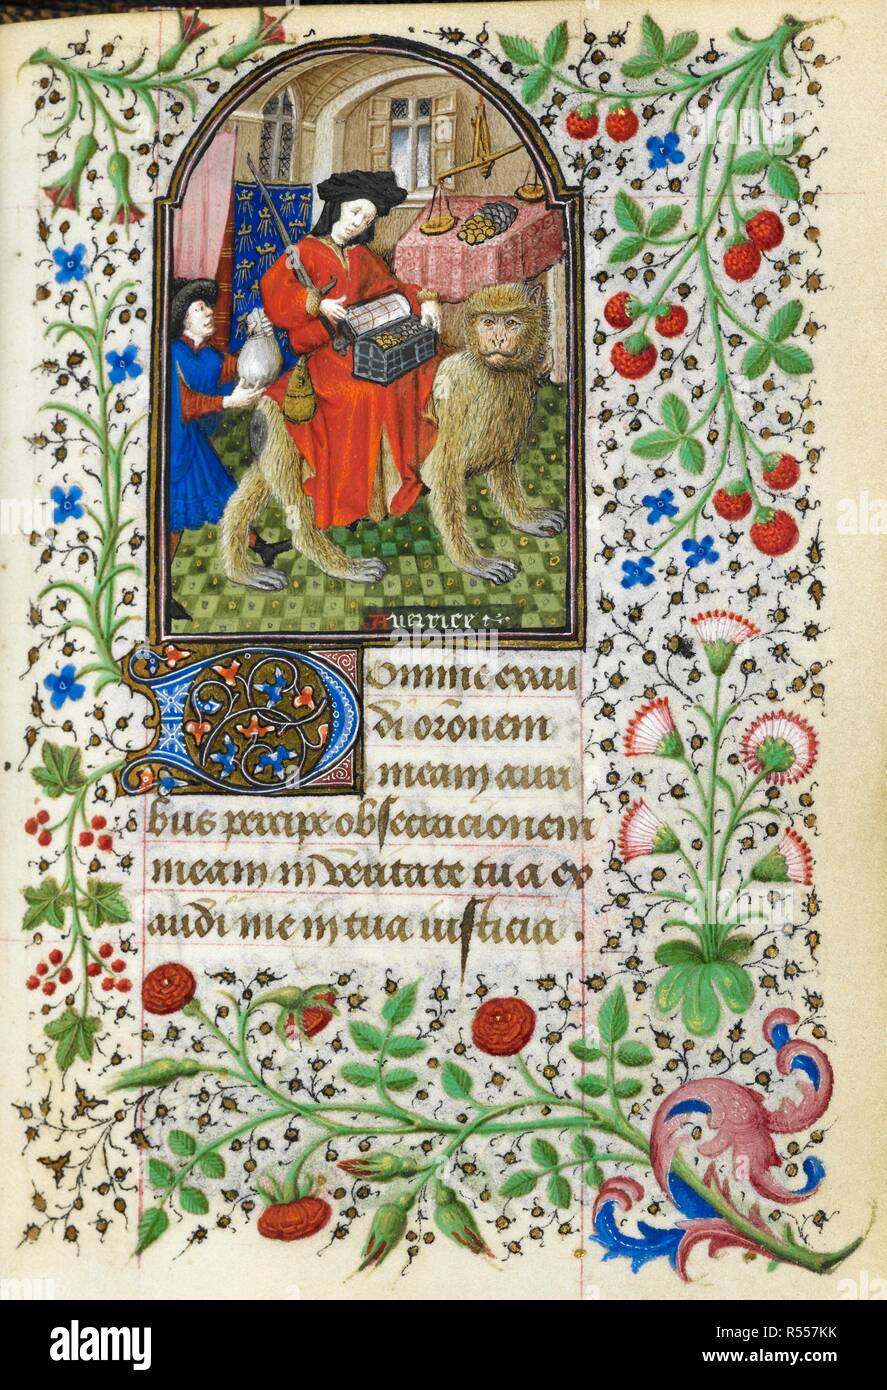 Auerice
Omine exau
di or̄onem
meam auri
bus percipe obsecracionem
meam in veritate tua ex
audi me in tua iusticia .
alamy
alamy
Image ID: R557KK
www.alamy.com